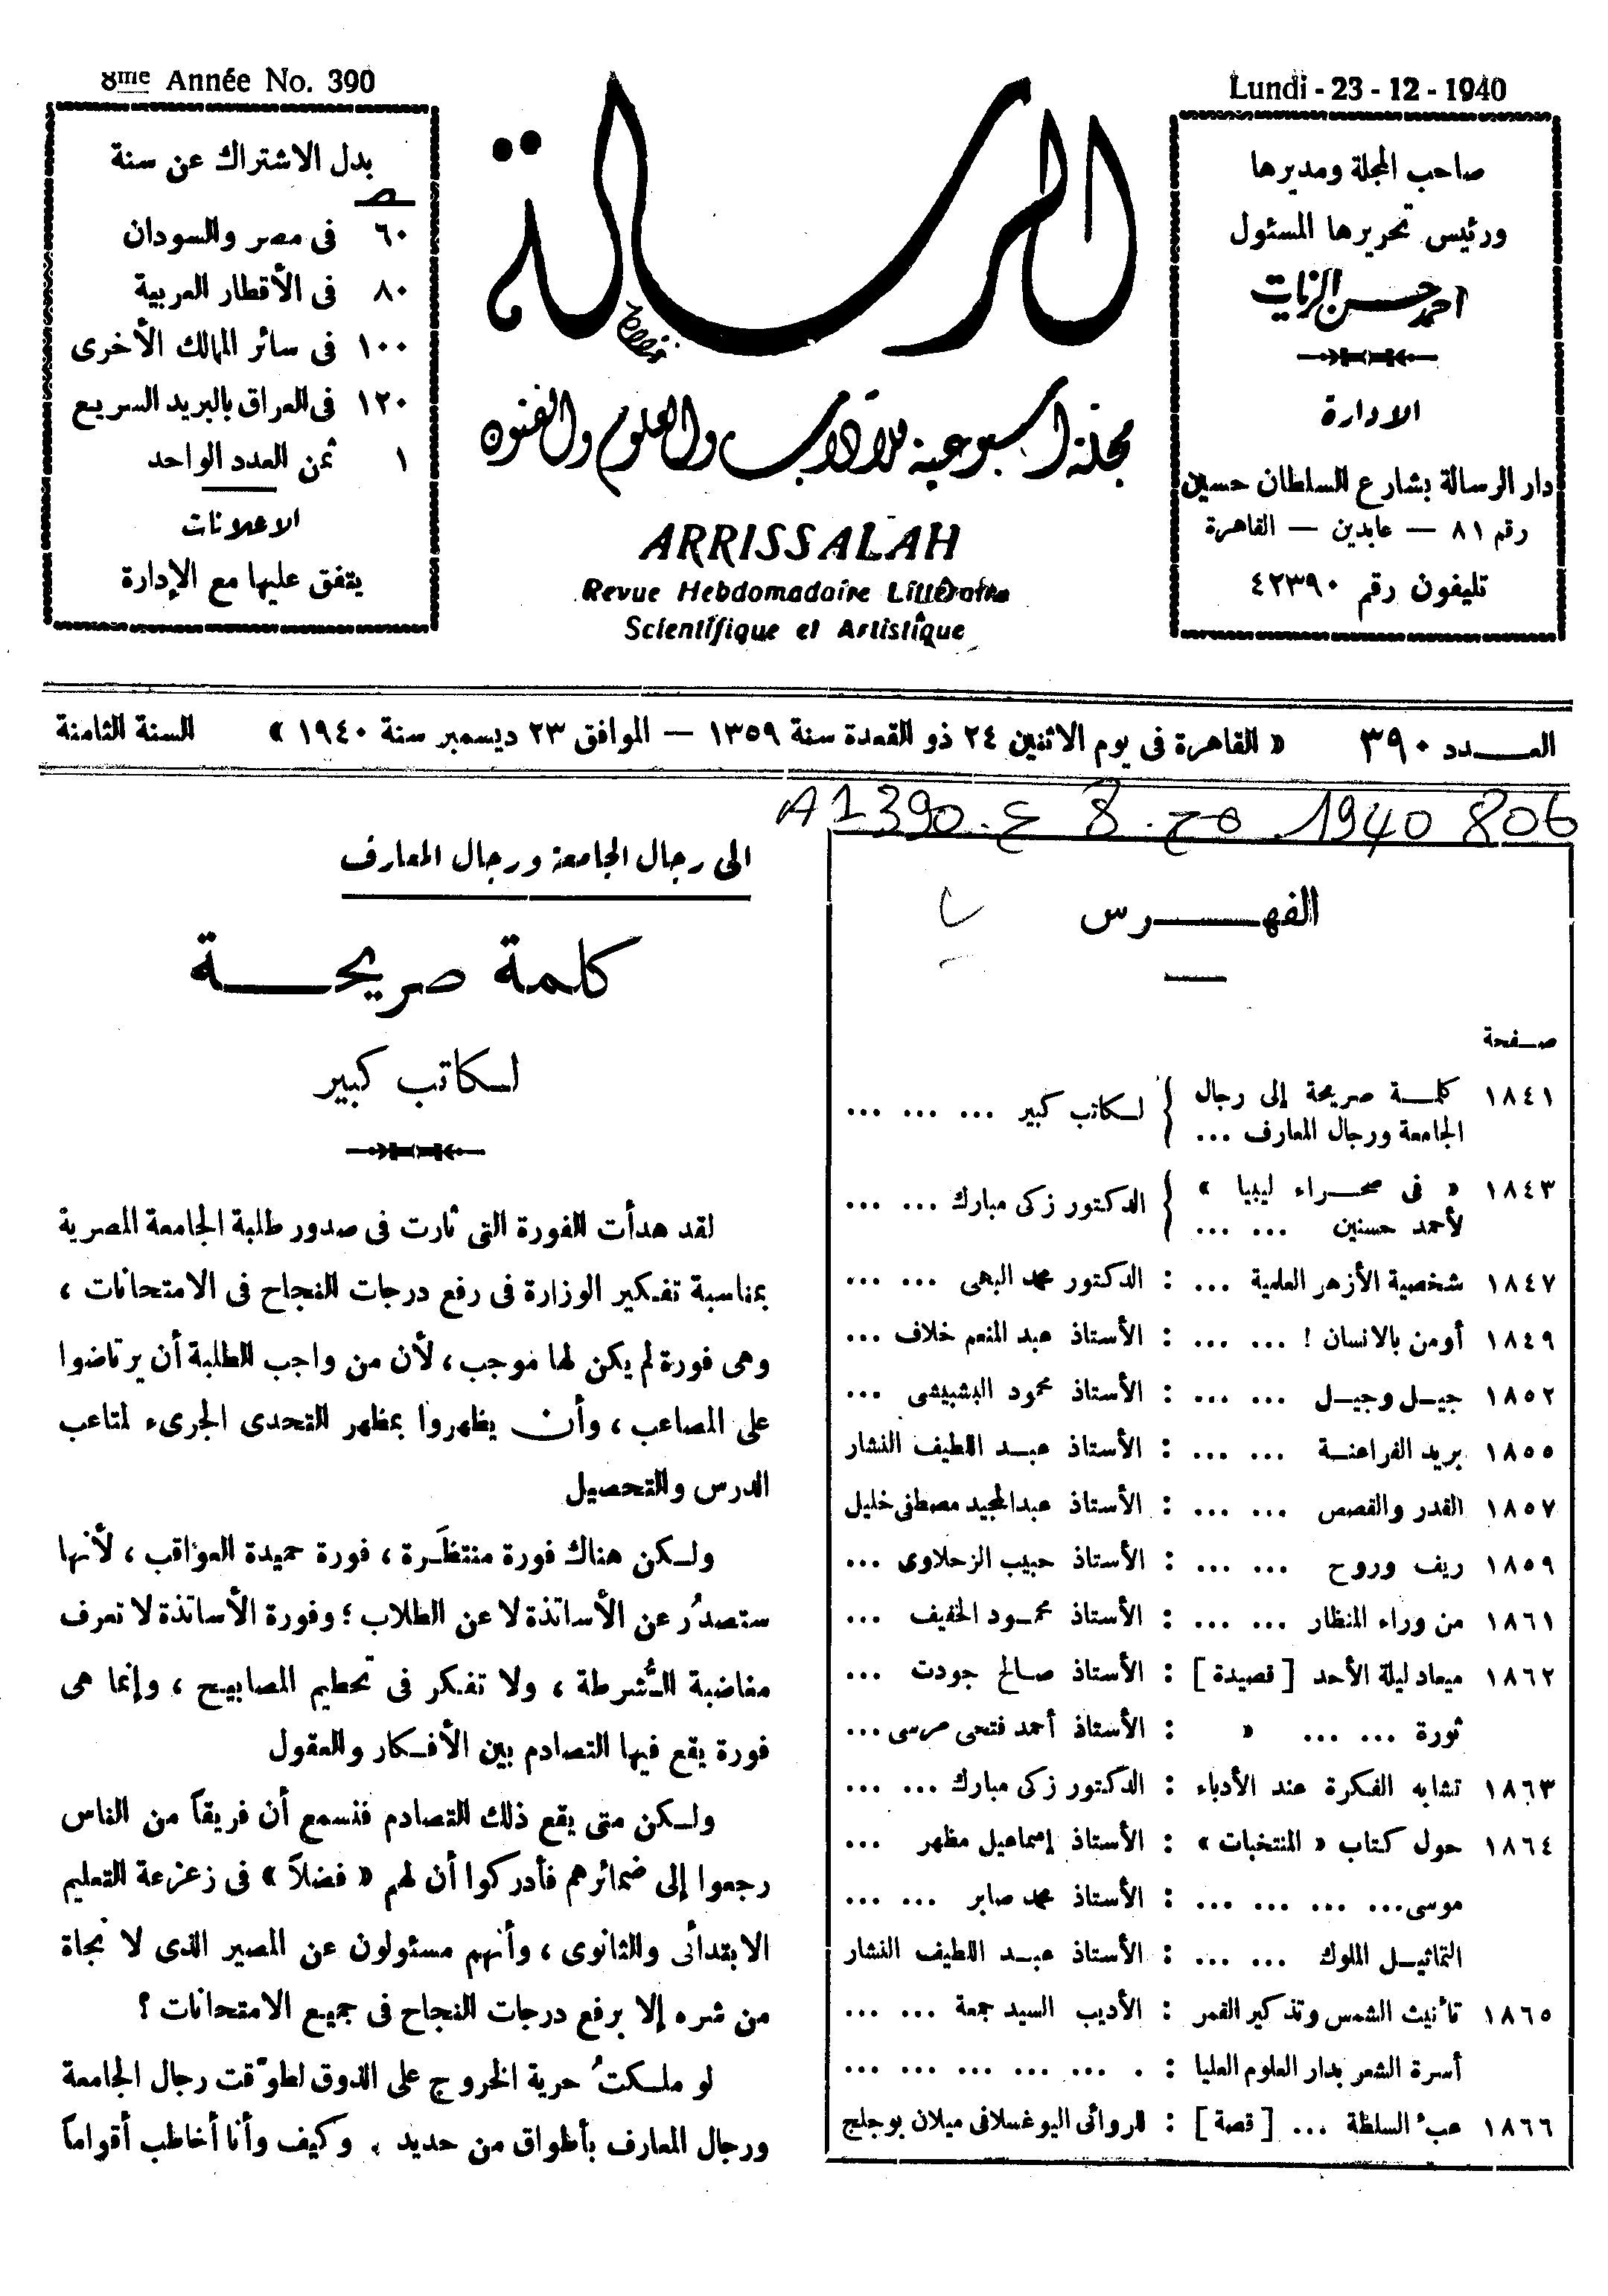 8me Année No. 390
Lundi - 23 - 12 - 1940
صاحب المجلة ومديرها
ورئيس تحريرها المسئول
احمد حسن الزيات
الادارة
دار الرسالة بشارع السلطان حسين
رقم ٨١ — عابدين — القاهرة
تليفون رقم ٤٢٣٩٠
الرسالة
مجلة أسبوعية للآداب والعلوم والفنون
ARRISSALAH
Revue Hebdomadaire Littéraire
Scientifique et Artistique
بدل الاشتراك عن سنة
ص
٦٠ فى مصر والسودان
٨٠ فى الأقطار العربية
١٠٠ فى سائر الممالك الأخرى
١٢٠ فى العراق بالبريد السريع
١ ثمن العدد الواحد
الاعلانات
يتفق عليها مع الإدارة
العـــدد ٣٩٠ « القاهرة فى يوم الاثنين ٢٤ ذو القعدة سنة ١٣٥٩ — الموافق ٢٣ ديسمبر سنة ١٩٤٠ » السنة الثامنة
A1 390 ع. 8 ح. 1940 806
الفهـــرس
صفحة
١٨٤١ كلمـة صريحة إلى رجال
الجامعة ورجال المعارف ... } لـكاتب كبير ... ... ...
١٨٤٣ « فى صحـراء ليبيا »
لأحمد حسنين ... ... } الدكتور زكى مبارك ... ...
١٨٤٧ شخصية الأزهر العلمية ... : الدكتور محمد البهى ... ...
١٨٤٩ أومن بالانسان ! ... ... : الأستاذ عبد المنعم خلاف ...
١٨٥٢ جيـل وجيـل ... ... : الأستاذ محمود البشبيشى ...
١٨٥٥ بريد الفراعنـة ... ... : الأستاذ عبـد اللطيف النشار
١٨٥٧ القدر والقصص ... ... : الأستاذ عبدالمجيد مصطفى خليل
١٨٥٩ ريف وروح ... ... : الأستاذ حبيب الزحلاوى ...
١٨٦١ من وراء المنظار ... ... : الأستاذ محمـود الخفيف ...
١٨٦٢ ميعاد ليلة الأحد [ قصيدة ] : الأستاذ صـالح جودت ...
ثورة ... ... « : الأستاذ أحمد فتحى مرسى ...
١٨٦٣ تشابه الفكرة عند الأدباء : الدكتور زكى مبارك ... ...
١٨٦٤ حول كتاب « المنتخبات » : الأستاذ إسماعيل مظهر ...
موسى ... ... ... ... : الأستاذ محمد صابر ... ...
التماثيـل الملوك ... ... : الأستاذ عبـد اللطيف النشار
١٨٦٥ تأنيث الشمس وتذكير القمر : الأديب السيد جمعة ... ...
أسرة الشعر بدار العلوم العليا : . ... ... ... ... ...
١٨٦٦ عبء السلطة ... [ قصة ] : للروائى اليوغسلافى ميلان بوجلج
الى رجال الجامعة ورجال المعارف
كلمة صريحـــة
لـكاتب كبير
لقد هدأت الفورة التى ثارت فى صدور طلبة الجامعة المصرية
بمناسبة تفـكير الوزارة فى رفع درجات النجاح فى الامتحانات ،
وهى فورة لم يكن لها موجب ، لأن من واجب الطلبة أن يرتاضوا
على المصاعب ، وأن يظهروا بمظهر التحدى الجرىء لمتاعب
الدرس والتحصيل
ولـكن هناك فورة منتظَـرة ، فورة حميدة العواقب ، لأنها
ستصدُر عن الأساتذة لا عن الطلاب ؛ وفورة الأساتذة لا تعرف
مغاضبة الشُّرطة ، ولا تفـكر فى تحطيم المصابيح ، وإنما هى
فورة يقع فيها التصادم بين الأفـكار والعقول
ولـكن متى يقع ذلك التصادم فنسمع أن فريقاً من الناس
رجعوا إلى ضمائرهم فأدركوا أن لهم « فضلاً » فى زعزعة التعليم
الابتدائى والثانوى ، وأنهم مسئولون عن المصير الذى لا نجاة
من شره إلا برفع درجات النجاح فى جميع الامتحانات ؟
لو ملـكتُ حرية الخروج على الذوق لطوّقت رجال الجامعة
ورجال المعارف بأطواق من حديد . وكيف وأنا أخاطب أقواماً